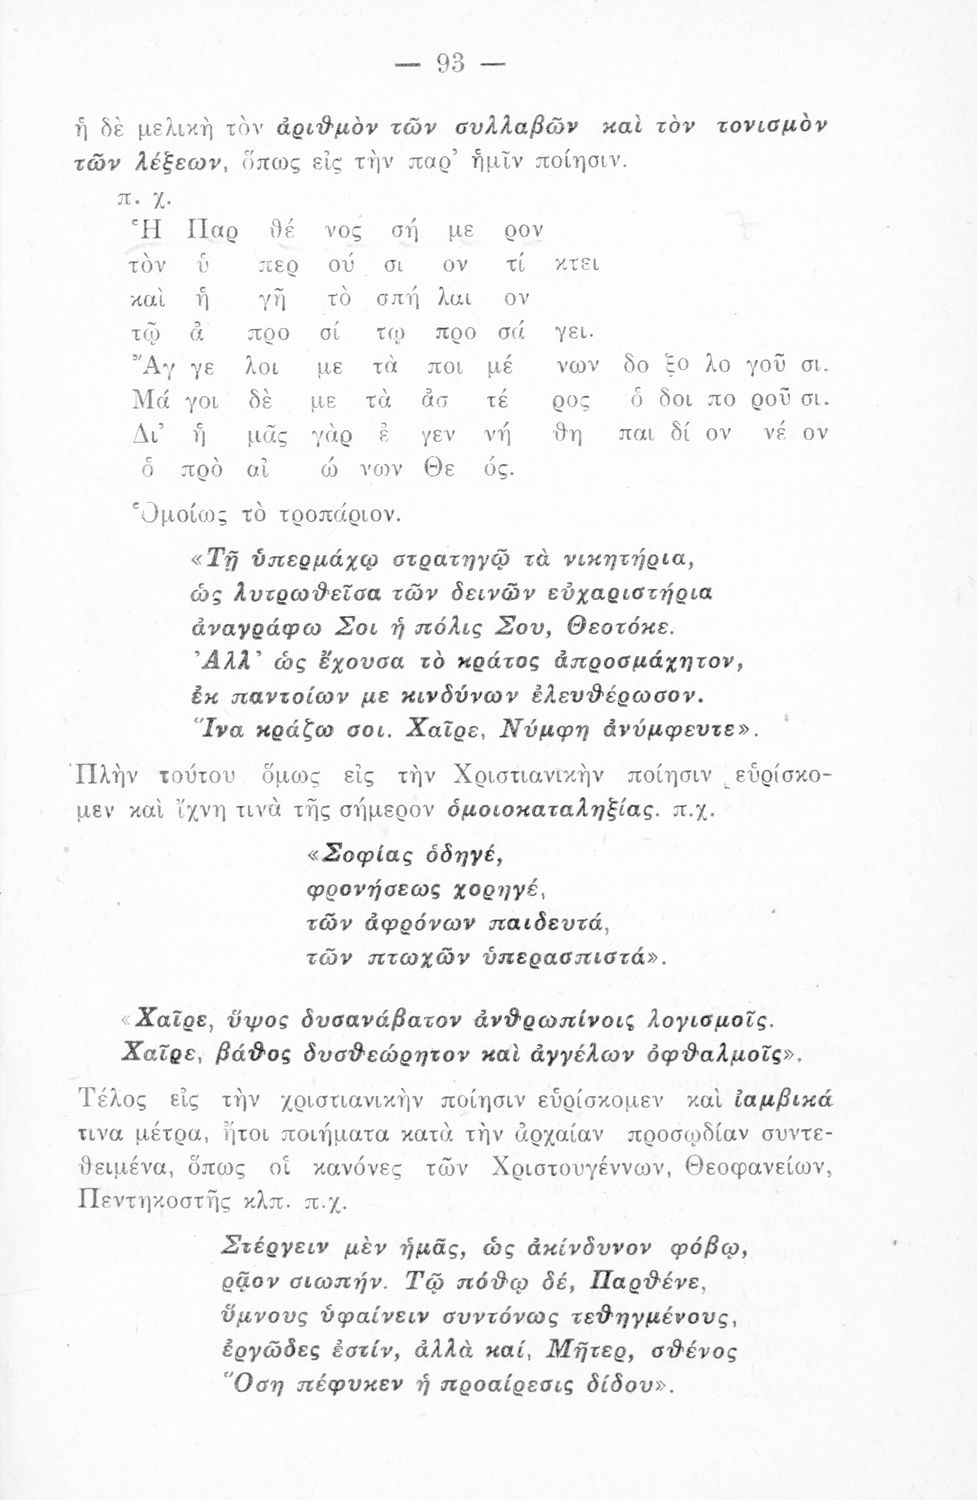 — 93 —
ἡ δὲ μελικὴ τὸν ἀριθμὸν τῶν συλλαβῶν καὶ τὸν τονισμὸν
τῶν λέξεων, ὅπως εἰς τὴν παρ’ ἡμῖν ποίησιν.
π. χ.
Ἡ Παρ θέ νος σή με ρον
τὸν ὑ περ ού σι ον τί κτει
καὶ ἡ γῆ τὸ σπή λαι ον
τῷ ἀ προ σί τῳ προ σά γει.
Ἄγ γε λοι με τὰ ποι μέ νων δο ξο λο γοῦ σι.
Μά γοι δὲ με τὰ ἀσ τέ ρος ὁ δοι πο ροῦ σι.
Δι’ ἡ μᾶς γὰρ ἐ γεν νή θη παι δί ον νέ ον
ὁ πρὸ αἰ ώ νων Θε ός.
Ὁμοίως τὸ τροπάριον.
«Τῇ ὑπερμάχῳ στρατηγῷ τὰ νικητήρια,
ὡς λυτρωθεῖσα τῶν δεινῶν εὐχαριστήρια
ἀναγράφω Σοι ἡ πόλις Σου, Θεοτόκε.
Ἀλλ’ ὡς ἔχουσα τὸ κράτος ἀπροσμάχητον,
ἐκ παντοίων με κινδύνων ἐλευθέρωσον.
Ἵνα κράζω σοι. Χαῖρε, Νύμφη ἀνύμφευτε».
Πλὴν τούτου ὅμως εἰς τὴν Χριστιανικὴν ποίησιν εὑρίσκο-
μεν καὶ ἴχνη τινὰ τῆς σήμερον ὁμοιοκαταληξίας. π.χ.
«Σοφίας ὁδηγέ,
φρονήσεως χορηγέ,
τῶν ἀφρόνων παιδευτά,
τῶν πτωχῶν ὑπερασπιστά».
«Χαῖρε, ὕψος δυσανάβατον ἀνθρωπίνοις λογισμοῖς.
Χαῖρε, βάθος δυσθεώρητον καὶ ἀγγέλων ὀφθαλμοῖς».
Τέλος εἰς τὴν χριστιανικὴν ποίησιν εὑρίσκομεν καὶ ἰαμβικά
τινα μέτρα, ἤτοι ποιήματα κατὰ τὴν ἀρχαίαν προσῳδίαν συντε-
θειμένα, ὅπως οἱ κανόνες τῶν Χριστουγέννων, Θεοφανείων,
Πεντηκοστῆς κλπ. π.χ.
Στέργειν μὲν ἡμᾶς, ὡς ἀκίνδυνον φόβῳ,
ρᾷον σιωπήν. Τῷ πόθῳ δέ, Παρθένε,
ὕμνους ὑφαίνειν συντόνως τεθηγμένους,
ἐργῶδες ἐστίν, ἀλλὰ καί, Μῆτερ, σθένος
Ὅση πέφυκεν ἡ προαίρεσις δίδου».